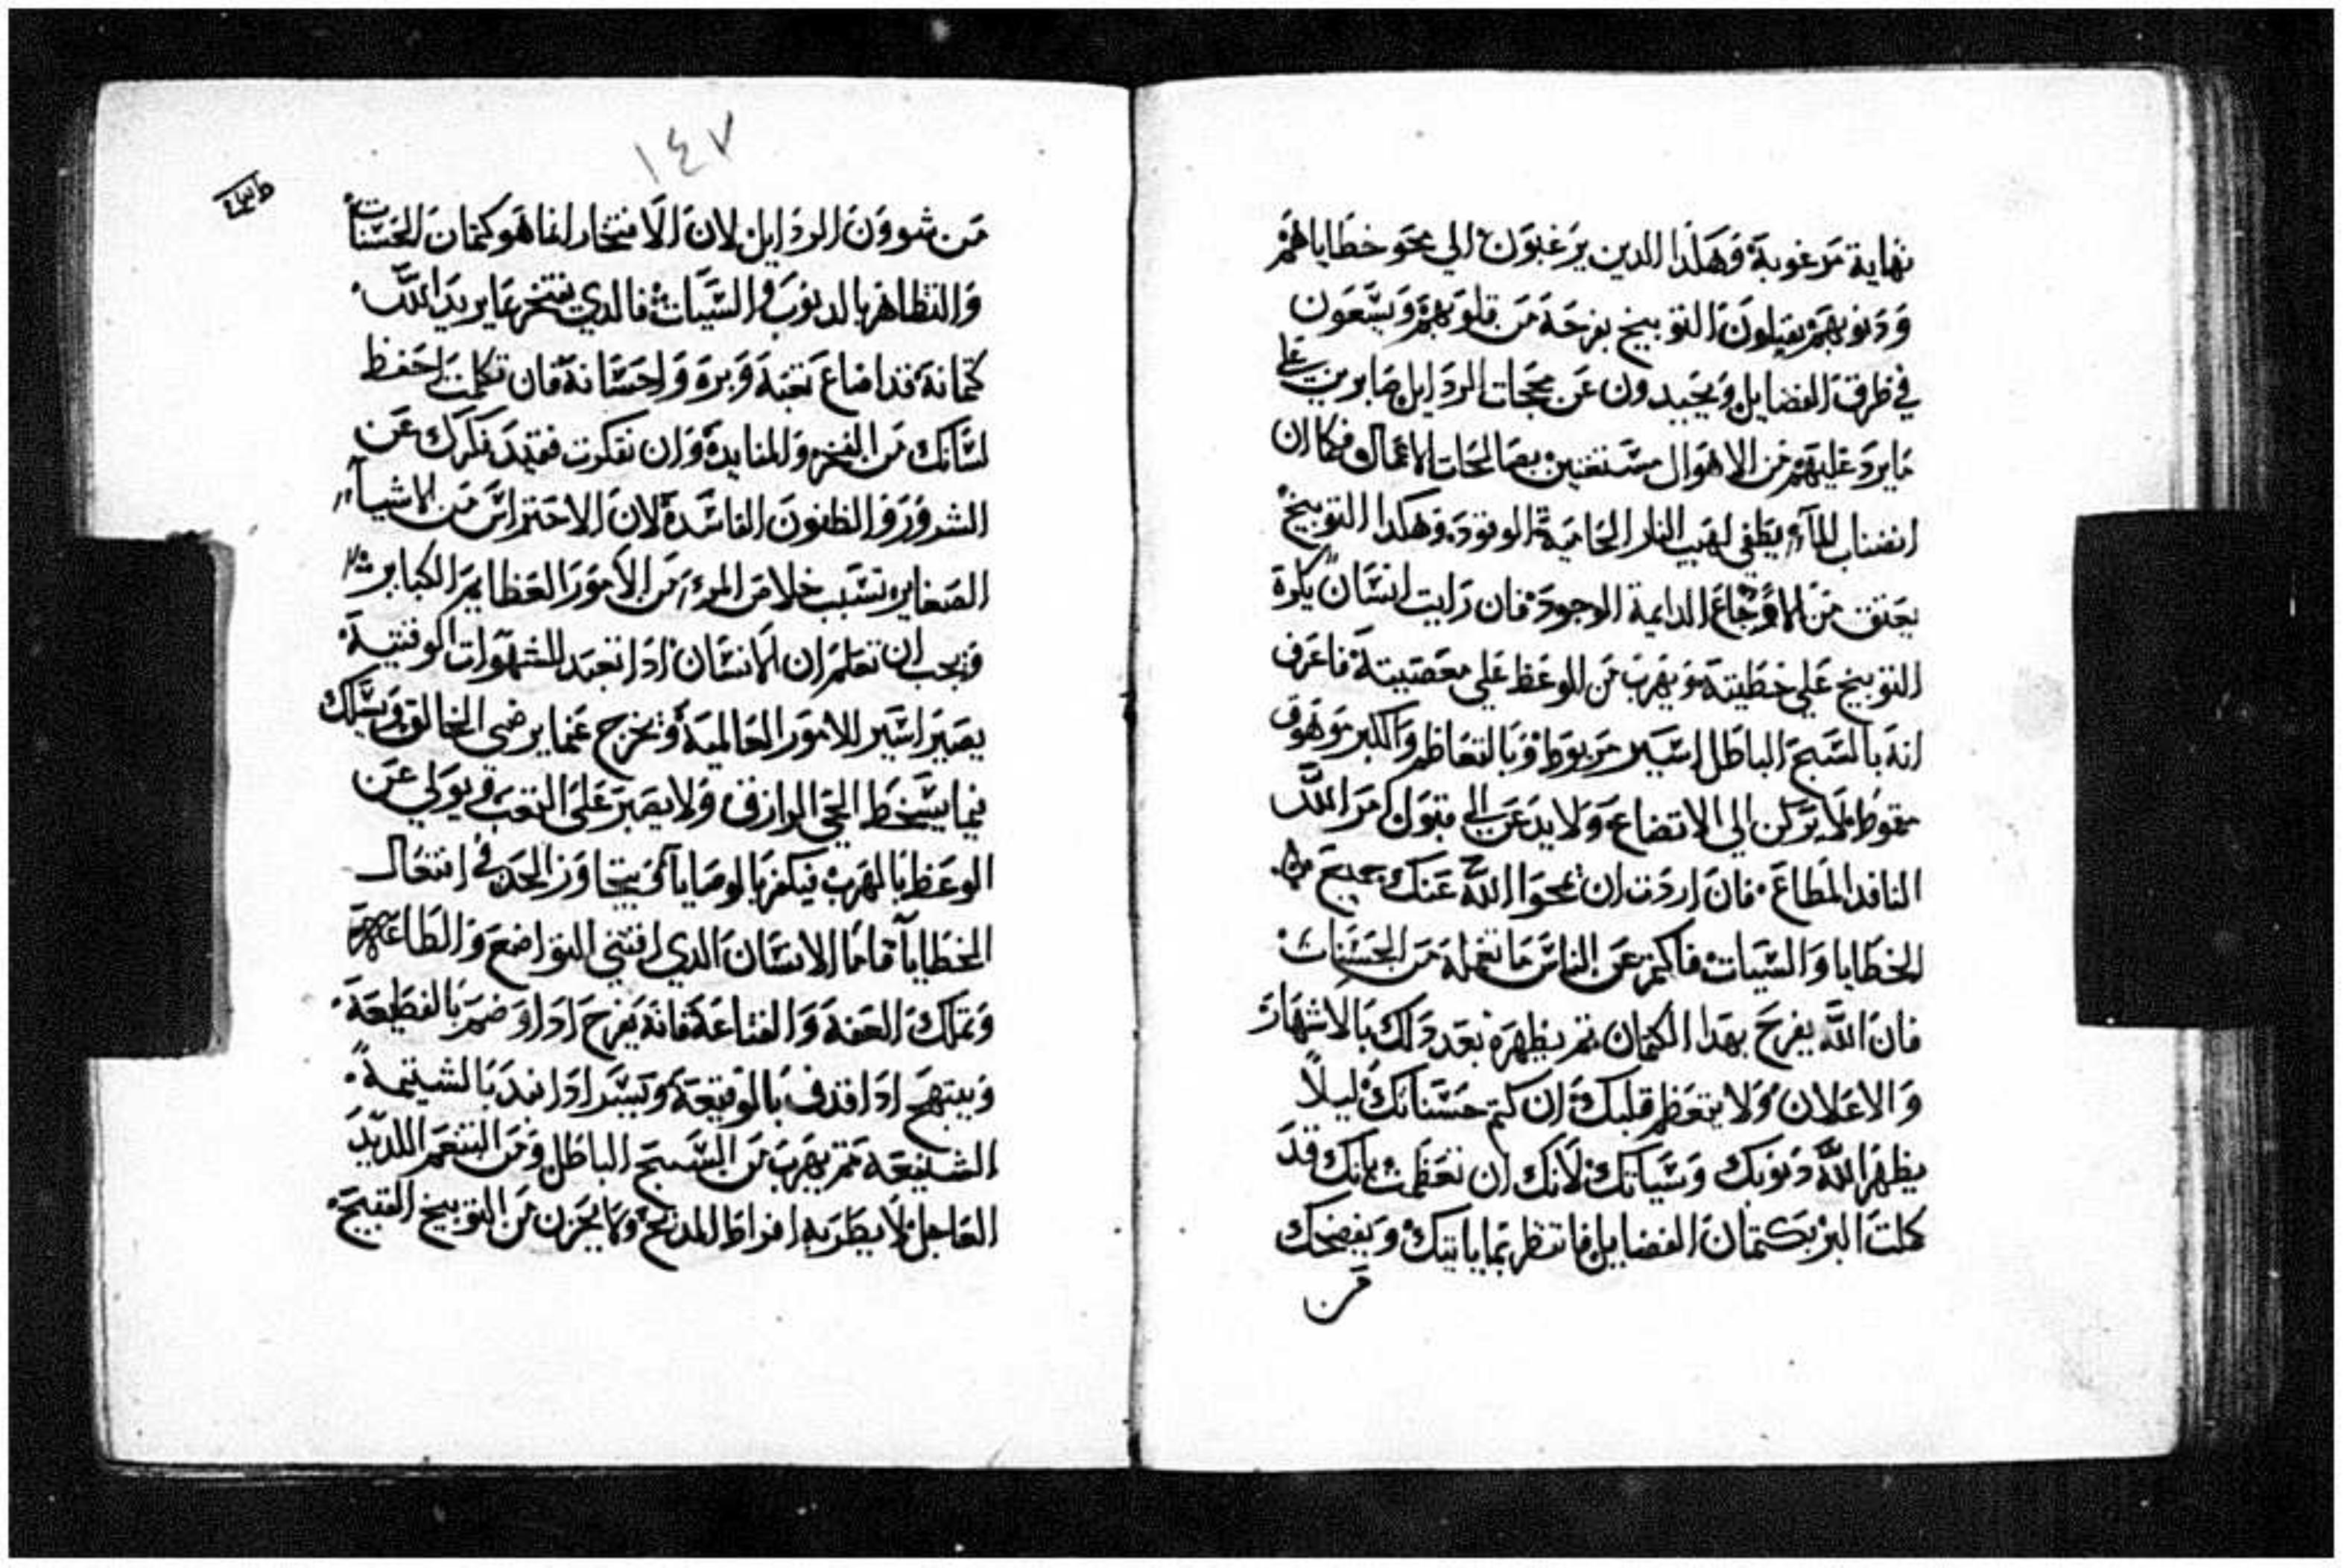 نهاية مرغوبة وهكدا الدين يرغبون الي محو خطاياهم
ودنوبهم يقبلون التوبيخ بفرحة من قلوبهم ويسعون
في طرق الفضايل ويحيدون عن محجات الردايل صابرين علي
ما يرد عليهم من الاهوال مستغنين بصالحات الاعمال فكما ان
انصباب المآء يطفي لهيب النار الحامية الوقود وهكدا التوبيخ
يعتق من الاوجاع الدايمة الوجود فان رايت انسان يكره
التوبيخ علي خطيته ويهرب من الوعظ علي معصيته فاعرف
انه بالسبح الباطل اسير مربوط وبالتعاظم والكبر موهوق
مقوط لا يركن الي الاتضاع ولا يدعن الي قبول امر الله
النافد المطاع فان اردت ان يمحوا الله عنك جميع
الخطايا والسيات فاكتم عن الناس ما تفعله من الحسنات
فان الله يفرح بهدا الكتمان تم يظهره بعد دلك بالاشهار
والاعلان ولا يتعظم قلبك ان كتم حسناتك ليلاً
يظهر الله دنوبك وسياتك لانك ان تعظمت بانك قد
كملت البر بكتمان الفضايل فانتظر بما ياتيك ويفضحك
من
١٤٧
من شوون الردايل لان الافتخار انما هو كتمان الحسنات
والتظاهر بالدنوب والسيات فالدي يفتخر بما يريد الله
كتمانه فقد اضاع تعبه وبره واحسانه فان تكلمت احفظ
لسانك من الفخر والمنابدة وان تفكرت فقيد فكرك عن
الشرور والظنون الفاسدة لان الاحتراس من الاشيآء
الصغايره تسبب خلاص المرء من الامور العظايم الكبايره
ويجب ان تعلم ان الانسان ادا تعبد للشهوات الوقتية
يصير اسير للامور العالمية ويخرج عما يرضي الخالق ويسلك
فيما يسخط الحي الرازق ولا يصبر علي التعب ويولي عن
الوعظ بالهرب فيكفر بالوصايا كي يتجاوز الحد في افتعال
الخطايا فاما الانسان الدي اقتني التواضع والطاعة
وتملك العفة والقناعة فانه يفرح ادا اوضم بالفظيعة
ويبتهج ادا قدف بالوقيعة ويسر ادا ابتد بالشتيمة
الشنيعة تم يهرب من السبح الباطل ومن التنعم اللديد
العاجل لا يطربه افراط المدح ولا يحزن من التوبيخ القبيح